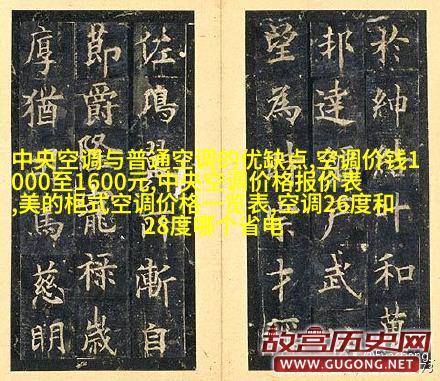 於紳十和黄
邦達武
望為才
佐漸自
節爵禄歲
厚猶馬慈明
中央空调与普通空调的优缺点,空调价钱1
000至1600元,中央空调价格报价表
,美的柜式空调价格一览表,空调26度和
28度哪个省电
故宫历史网
WWW.GUGONG.NET